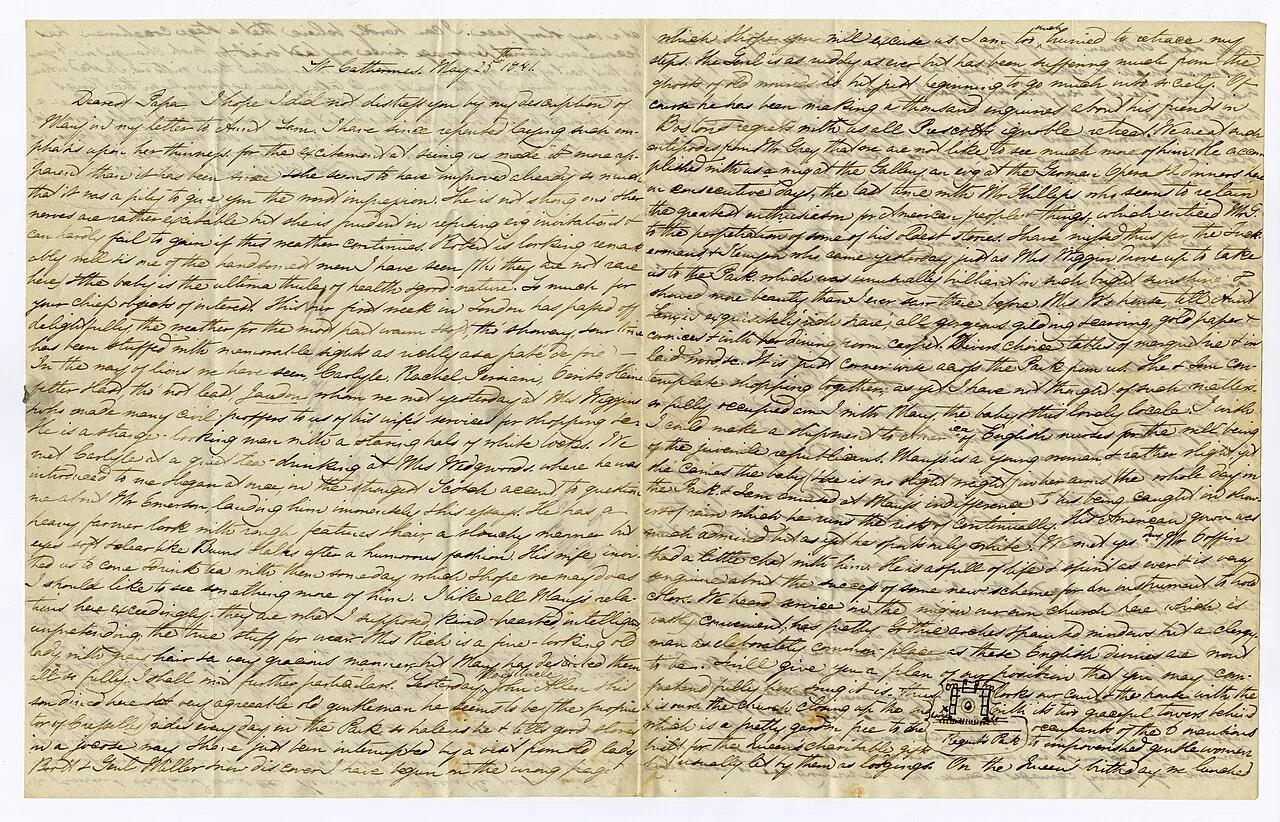 St. Catherines. May 25th 1841.
Dearest Papa. I hope I did not distress you by my description of
Mary in my letter to Aunt Sam. I have since repented laying such em-
phasis upon her thinness for the excitement of seeing us made it more ap-
parent than it has been since & she seems to have improved already so much
that it was a pity to give you the most impression. She is not strong & her
nerves are rather excitable but she is prudent in refusing evg invitations &
can hardly fail to gain if this weather continues. Robert is looking remark
ably well & is one of the handsomest men I have seen (tho' they are not rare
here) & the baby is the ultima thule of health & good nature. So much for
your chief objects of interest. This our first week in London has passed off
delightfully, the weather for the most part warm & soft, tho showery, & our time
has been stuffed with memorable sights as richly as a paté de foie
In the way of lions we have seen, Carlyle, Rachel, Persiani,
whom we met yesterday at Mrs Wiggins
who made many civil proffers to us of his wife's services for shopping &c
He is a strange-looking man with a staring
met Carlyle at a quiet tea-drinking at Mrs Wedgwood's where he was
introduced to me & began at once, in the strongest Scotch accent to question
me about Mr Emerson, lauding him immensely & his essays. He has a
heavy farmer look, with rough features & hair a slouchy manner but
eyes & talks after a humorous fashion. His wife invi-
ted us to come & drink tea with them some day which I hope we may do as
I should like to see something more of him. I like all Mary's rela-
tions here exceedingly, they are what I supposed, kind-hearted intelligent
unpretending, the true stuff for wear. Mrs Rich is a fine looking old
lady with gray hair & a very gracious manner, but Mary has described them
all so fully, I shall not further particulars. Yesterday John Allen
dined here, a very agreeable old gentleman he seems to be, the proprie
tor of rides every day in the Park so hale is he & tells good stories
in a way. I have just been interrupted by a visit from old Lady
& Genl Miller & now discover I have begun on the wrong page!
which I hope you will excuse as I am too much hurried to retrace my
steps. the Genl is as ruddy as ever but has been suffering much from the
ghosts of old wounds & is but just beginning to go much into society. Of
course he has been making a thousand enquiries about his friends in
Boston & regrets with us all Prescott's ignoble retreat. We are at such
antipodes from Mr Gray that we are not like to see much more of him. He accom
plished with us a mng at the Gallery, an evg at the German Opera & dinners here
on consecutive days, the last time with Mr Phillips who seems to retain
the greatest enthusiasm for American people & things, which enticed Mr G.
to the perpetration of some of his oldest stories. I have missed thus far the
who came yesterday just as Mrs Wiggin drove up to take
us to the Park which was unusually brilliant in such bright sunshine &
showed more beauty than I ever saw there before. Mrs W's house
is exquisitely rich here, all gorgeous gilding & carving, gold paper &
cornices with her dining room carpet. Divers choice tables of marqueterie & in
laid wood &c. It is just corner wise across the Park from us. She & Sam con-
template shopping together, as yet I have not thought of such matters
so fully occupied am I with Mary, the baby & this lovely locale. I wish
I could make a shipment to America of English nurses for the well being
of the juvenile republicans. Mary's is a young woman & rather slight yet
she carries the baby (who is no slight weight) in her arms the whole day in
the Park & I am amused at Mary's indifference to his being caught in show
ers of rain which he runs the risk of continually. His American gown was
much admired but as yet he sports only white. We met yes'dy Mr Coffin
& had a little chat with him, he is as full of life & spirit as ever & is very
sanguine about the success of some new scheme for an instrument to
&c &c. We heard service in the mng in our own church here which is
vastly convenient, has pretty Gothic arches & painted windows but a clergy
man as elaborately common-place as these English divines are wont
to be. I will give you a plan of our position that you may com-
prehend fully how snug it is. Thus looks our court & the house with the
x is ours the church closing up the with its two graceful towers behind
which is a pretty garden free to the occupants of the mansions
built for the Queen's charitable gifts to impoverished gentlewomen
but usually let by them as lodgings. On the Queen's birthday we lunched
Regent's Park